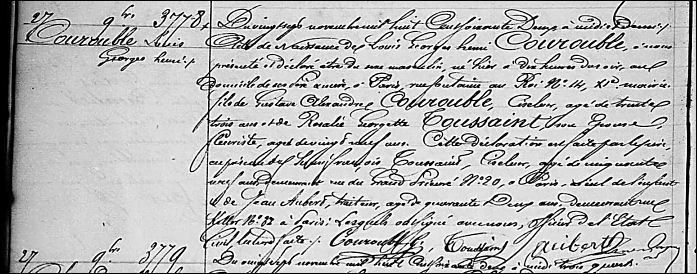 27 9bre 3778 Du vingt sept novembre mil huit cent soixante deux à midi et demi
Courouble Louis Acte de Naissance de Louis Georges henri Courouble, à nous
Georges henri présenté et déclaré être du sexe masculin, né hier à dix heures du soir, au
domicile de ses père & mère, à Paris, rue fontaine au Roi No. 14, XIe mairie
fils de Gustave Alexandre Courouble, Ciseleur, agé de trente
trois ans et de Rosalie Georgette Toussaint, son Epouse,
fleuriste, agée de vingt neuf ans. Cette déclaration est faite par le père,
en présence de françois Toussaint, Ciseleur, agé de cinquante
neuf ans, demeurant rue du Grand Prieuré No. 20, à Paris, aïeul de l'enfant
& de Jean Aubert, traiteur, agé de quarante Deux ans, demeurant rue
No. 32 à Paris: Lesquels ont signé avec nous, officier de l'Etat
Civil, lecture faite. Courouble Toussaint Aubert
27 9bre 3779 Du vingt sept novembre mil huit cent soixante deux, à midi trois quarts